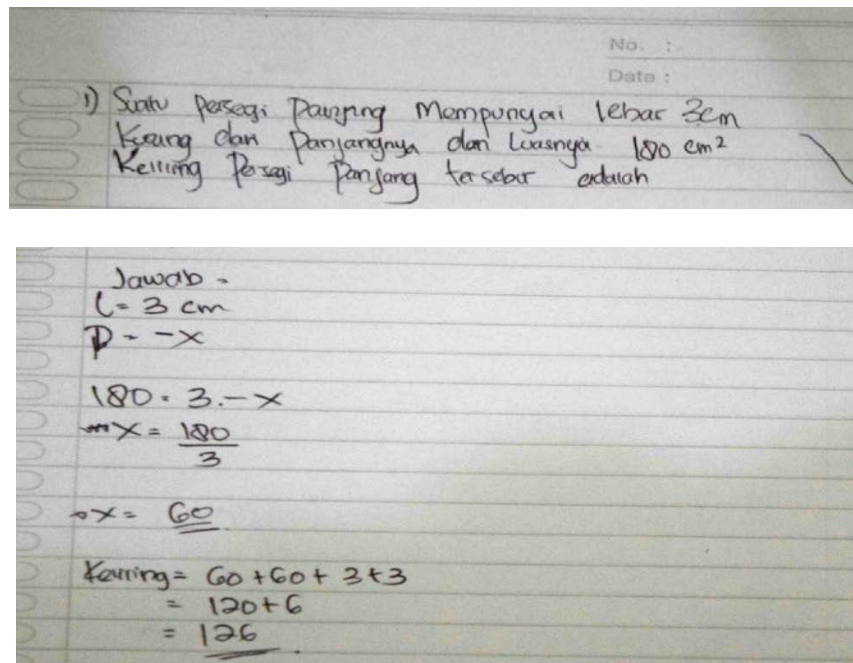 No. :
Date :
1) Suatu Persegi Panjang Mempunyai lebar 3cm
Kurang dari Panjangnya dan Luasnya 180 cm²
Keliling Persegi Panjang tersebut adalah
Jawab =
l = 3 cm
P = -x
180 = 3.-x
x = 180
3
x = 60
Keliling = 60 + 60 + 3 + 3
= 120 + 6
= 126